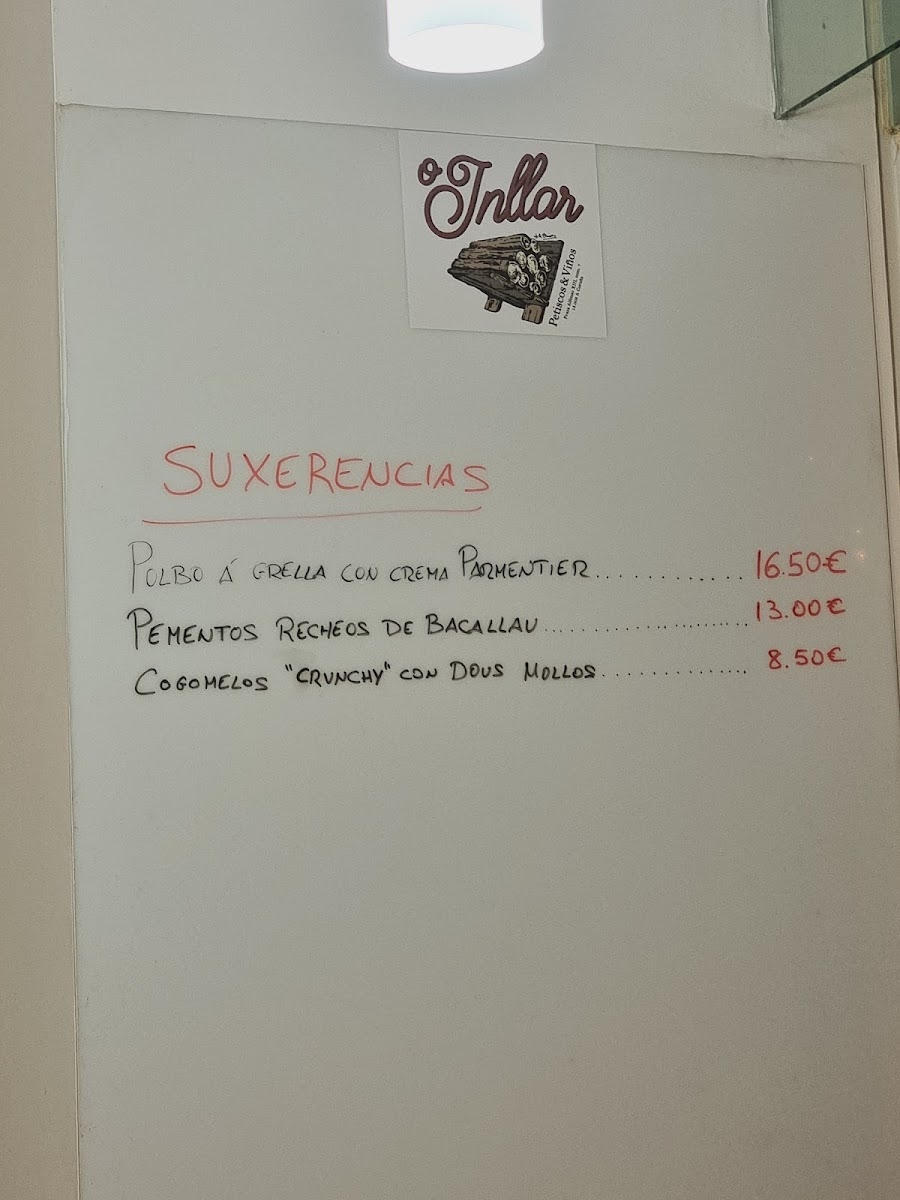 o Inllar
Petiscos & Viños
SUXERENCIAS
POLBO Á GRELLA CON CREMA PARMENTIER............ 16.50€
PEMENTOS RECHEOS DE BACALLAU..................... 13.00€
COGOMELOS "CRUNCHY" CON DOUS MOLLOS............... 8.50€